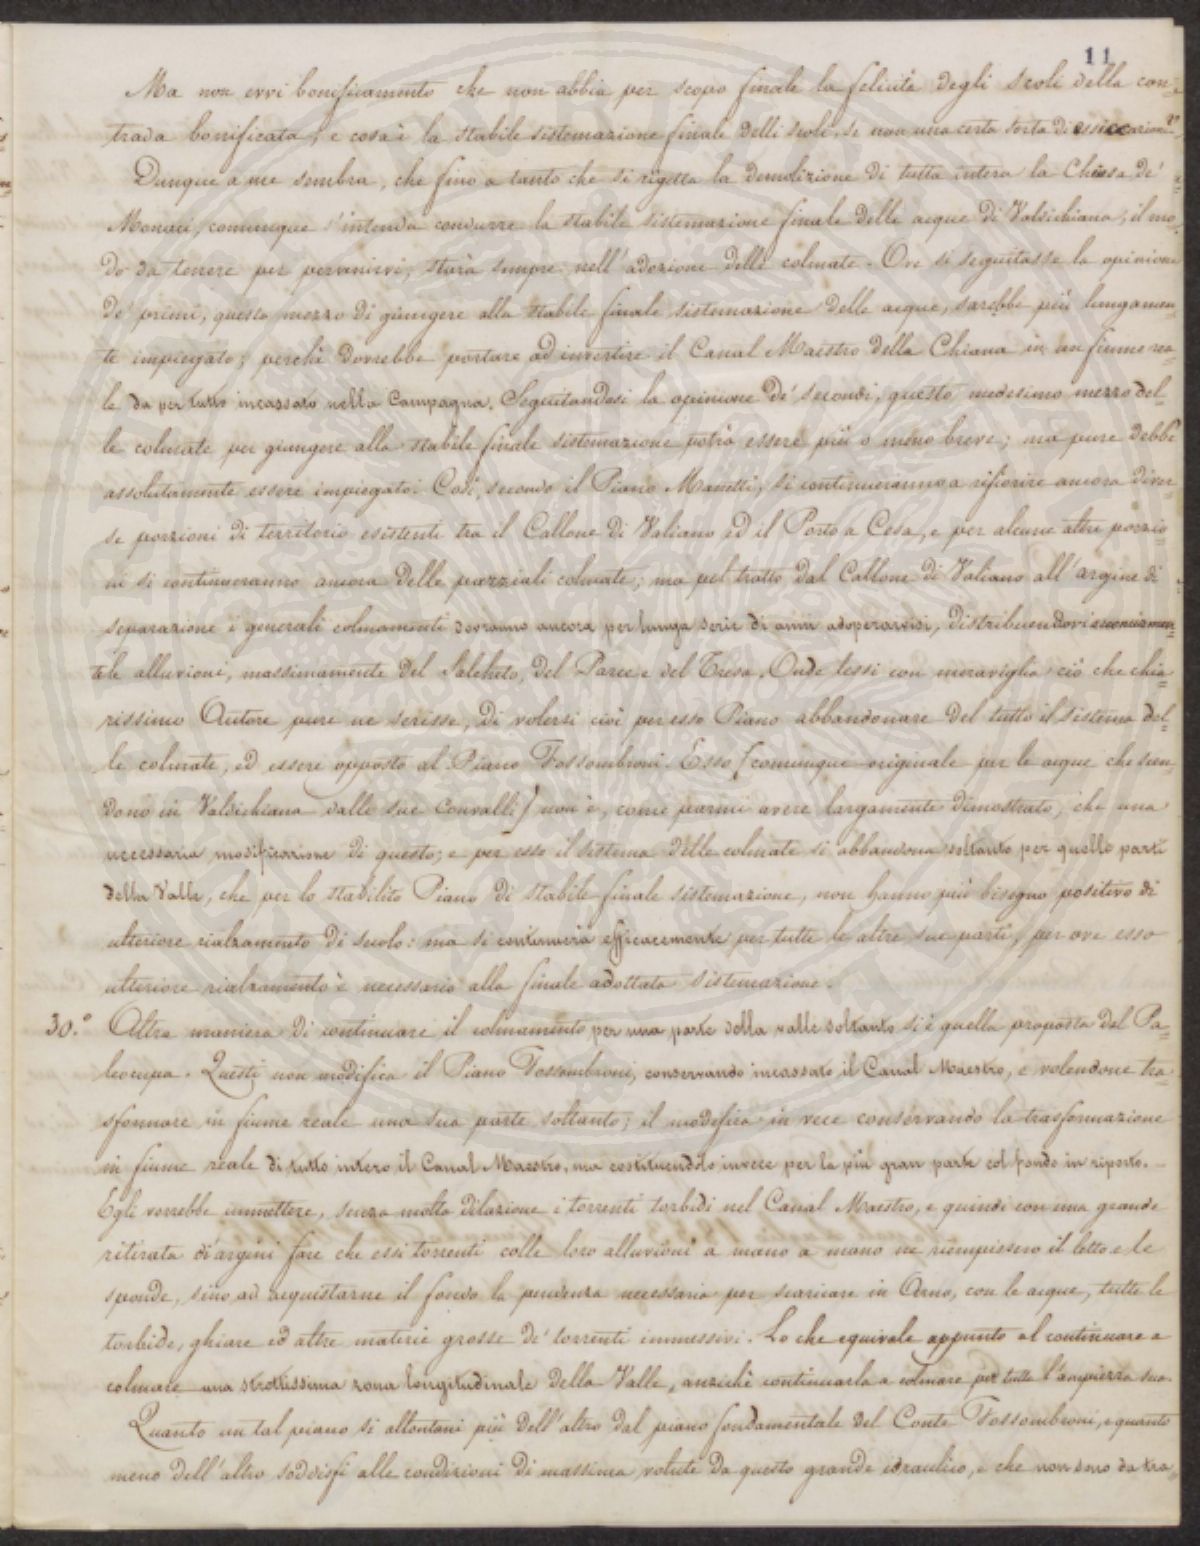 11
Ma non evvi bonificamento che non abbia per scopo finale la felicità degli scoli della con=
trada bonificata; e cosa è la stabile sistemazione finale delli scoli, se non una certa sorta di essiccazione?
Dunque a me sembra, che fino a tanto che si rigetta la demolizione di tutta intera la Chiusa de'
Monaci, comunque s'intenda condurre la stabile sistemazione finale delle acque di Valdichiana, il mo=
do da tenere per pervenirvi, starà sempre nell'adozione delle colmate. Ove si seguitasse la opinione
de' primi, questo mezzo di giungere alla stabile finale sistemazione delle acque, sarebbe più lungamen=
te impiegato; perchè dovrebbe portare ad invertire il Canal Maestro della Chiana in un fiume rea=
le da per tutto incassato nella Campagna. Seguitandosi la opinione de' secondi, questo medesimo mezzo del=
le colmate per giungere alla stabile finale sistemazione potrà essere più o meno breve; ma pure debbe
assolutamente essere impiegato. Così, secondo il Piano Manetti, si continueranno a rifiorire ancora diver=
se porzioni di territorio esistenti tra il Callone di Valiano ed il Porto a Cesa, e per alcune altre porzio=
ni si continueranno ancora delle parziali colmate; ma pel tratto dal Callone di Valiano all'argine di
separazione i generali colmamenti dovranno ancora per lunga serie di anni adoperarvisi, distribuendovi
te le alluvioni, massimamente del Salcheto, del Parce e del Tresa. Onde lessi con meraviglia ciò che chia=
rissimo Autore pure ne scrisse, di volersi cioè per esso Piano abbandonare del tutto il sistema del=
le colmate, ed essere opposto al Piano Fossombroni. Esso (comunque originale per le acque che scen=
dono in Valdichiana dalle sue Convalli) non è, come parmi avere largamente dimostrato, che una
necessaria modificazione di questo; e per esso il sistema delle colmate si abbandona soltanto per quelle parti
della Valle, che per lo stabilito Piano di stabile finale sistemazione, non hanno più bisogno positivo di
ulteriore rialzamento di suolo: ma si continuerà efficacemente per tutte le altre sue parti, per ove esso
ulteriore rialzamento è necessario alla finale adottata sistemazione.
30.° Altra maniera di continuare il colmamento per una parte della valle soltanto si è quella proposta dal Pa=
leocapa. Questi non modifica il Piano Fossombroni, conservando incassato il Canal Maestro, e volendone tra=
sformare in fiume reale una sua parte soltanto; il modifica in vece conservando la trasformazione
in fiume reale di tutto intero il Canal Maestro, ma costituendolo invece per la più gran parte col fondo in riporto.
Egli vorrebbe immettere, senza molta dilazione i torrenti torbidi nel Canal Maestro, e quindi con una grande
ritirata d'argini fare che essi torrenti colle loro alluvioni a mano a mano ne riempissero il letto e le
sponde, sino ad acquistarne il fondo la pendenza necessaria per scaricare in Arno, con le acque, tutte le
torbide, ghiare ed altre materie grosse de' torrenti immessivi. Lo che equivale appunto al continuare a
colmare una strettissima zona longitudinale della Valle, anzichè continuarla a colmare per tutta l'ampiezza sua.
Quanto un tal piano si allontani più dell'altro dal piano fondamentale del Conte Fossombroni, e quanto
meno dell'altro soddisfi alle condizioni di massima volute da questo grande idraulico, e che non sono da tra=